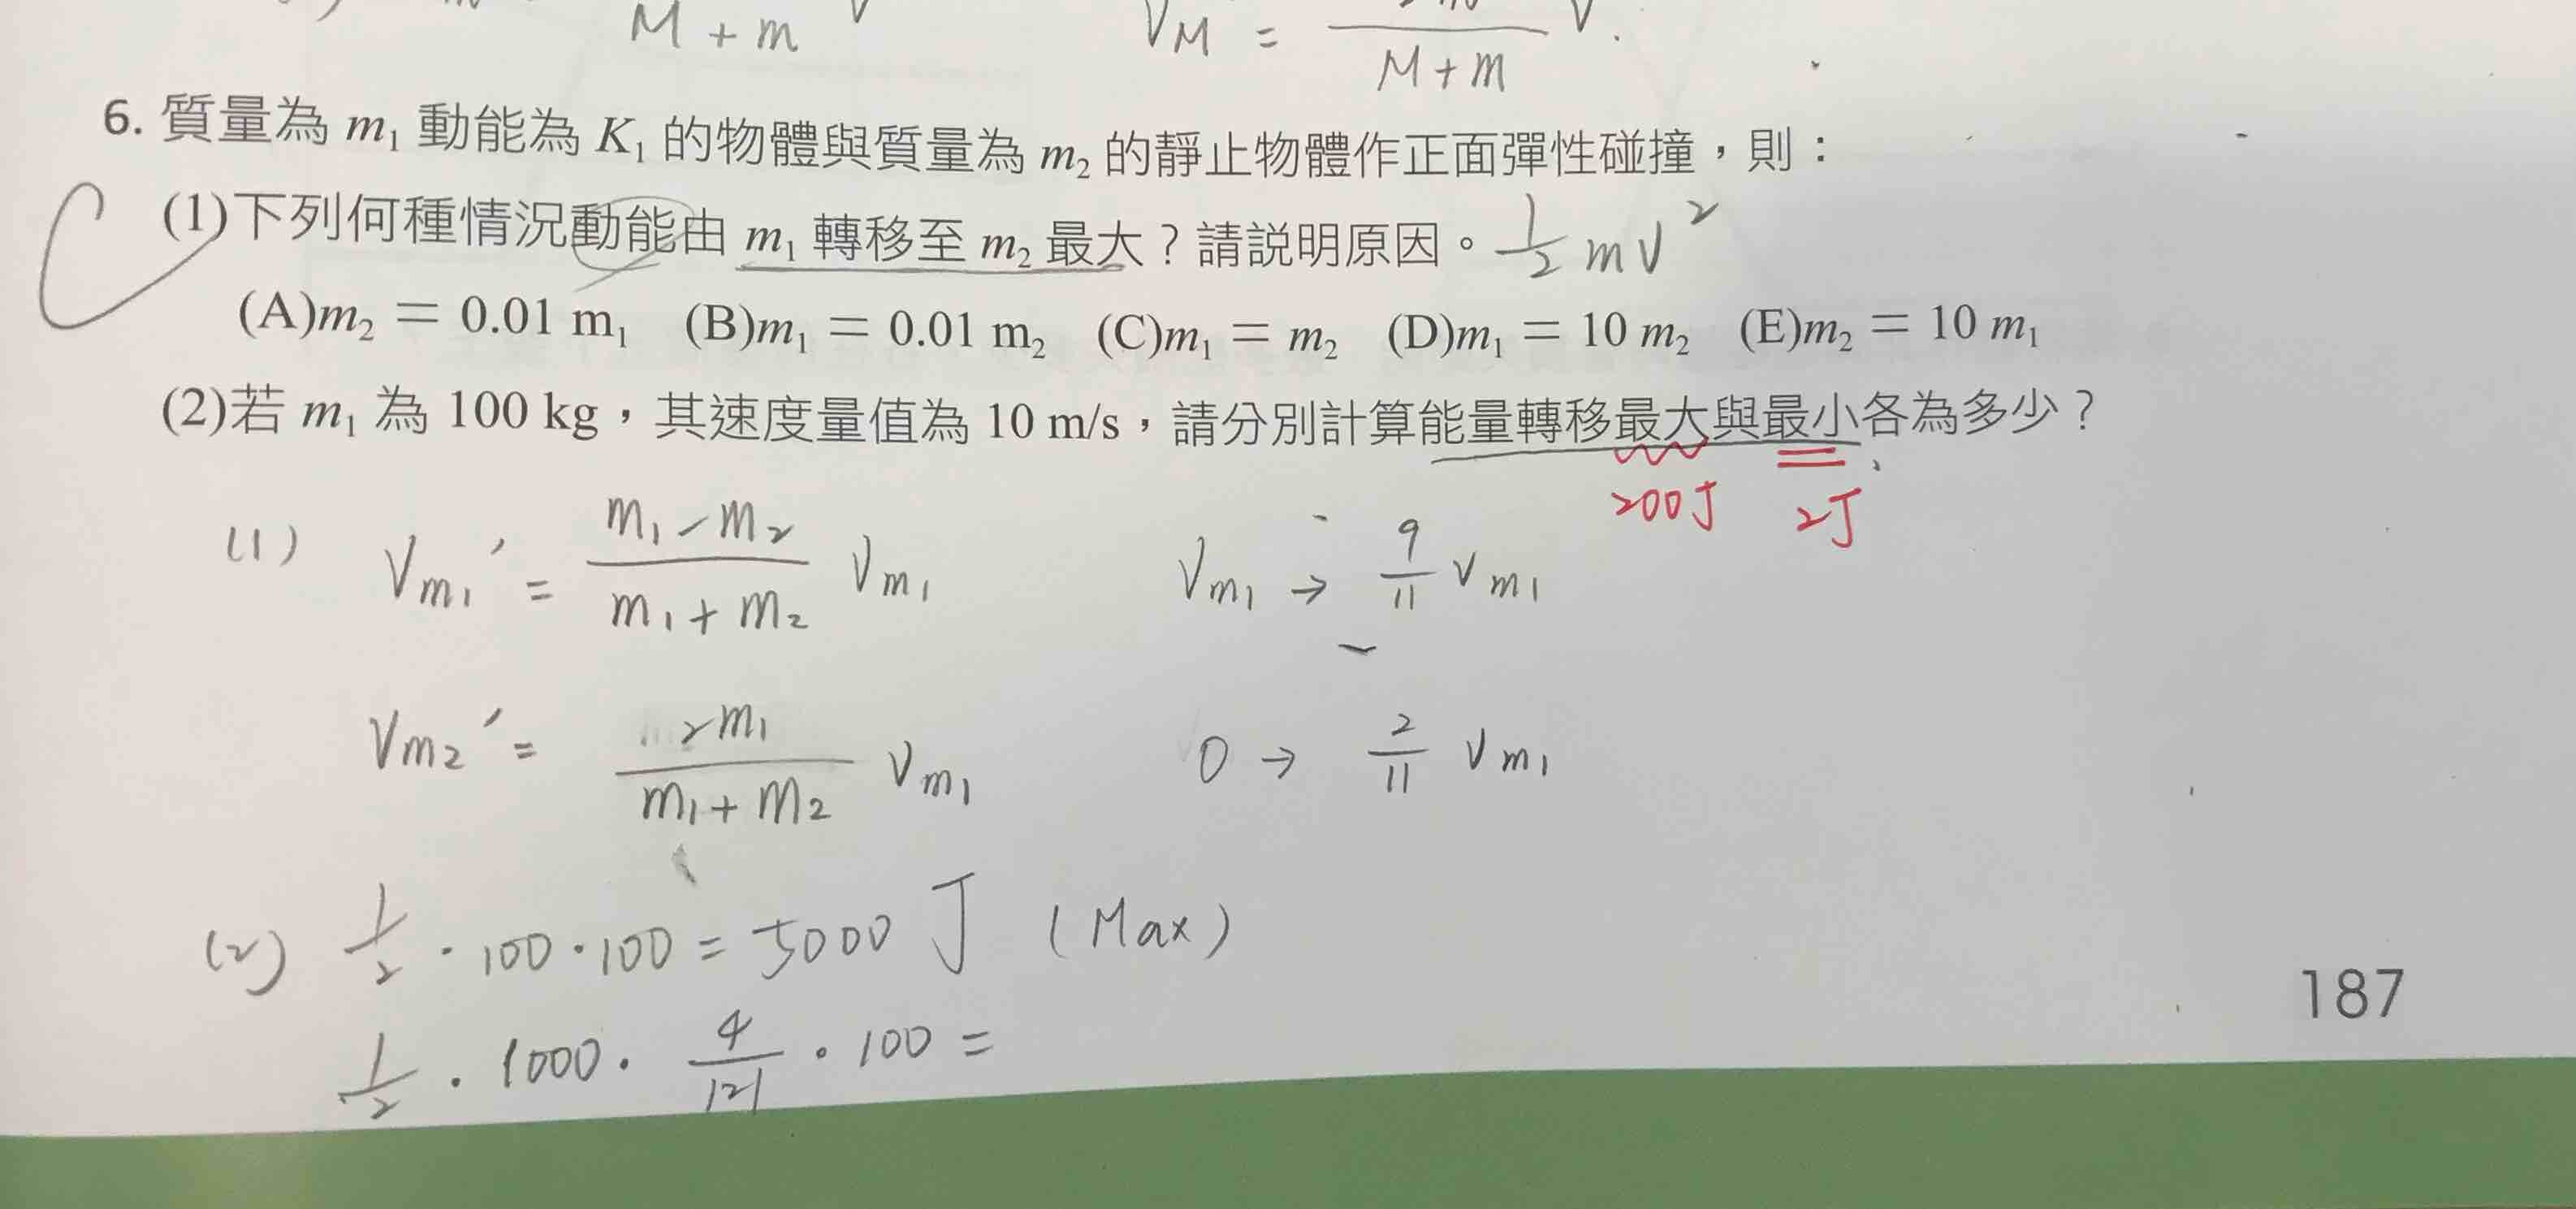 M + m V
V_M = ――― V.
M + m
6. 質量為 m₁ 動能為 K₁ 的物體與質量為 m₂ 的靜止物體作正面彈性碰撞，則：
C (1)下列何種情況動能由 m₁ 轉移至 m₂ 最大？請説明原因。 1/2 mV²
(A)m₂ = 0.01 m₁ (B)m₁ = 0.01 m₂ (C)m₁ = m₂ (D)m₁ = 10 m₂ (E)m₂ = 10 m₁
(2)若 m₁ 為 100 kg，其速度量值為 10 m/s，請分別計算能量轉移最大與最小各為多少？
200J 2J
(1) Vm₁' = (m₁ - m₂)/(m₁ + m₂) Vm₁ Vm₁ → 9/11 Vm₁
Vm₂' = 2m₁/(m₁ + m₂) Vm₁ 0 → 2/11 Vm₁
(2) 1/2 · 100 · 100 = 5000 J (Max)
1/2 · 1000 · 4/121 · 100 =
187